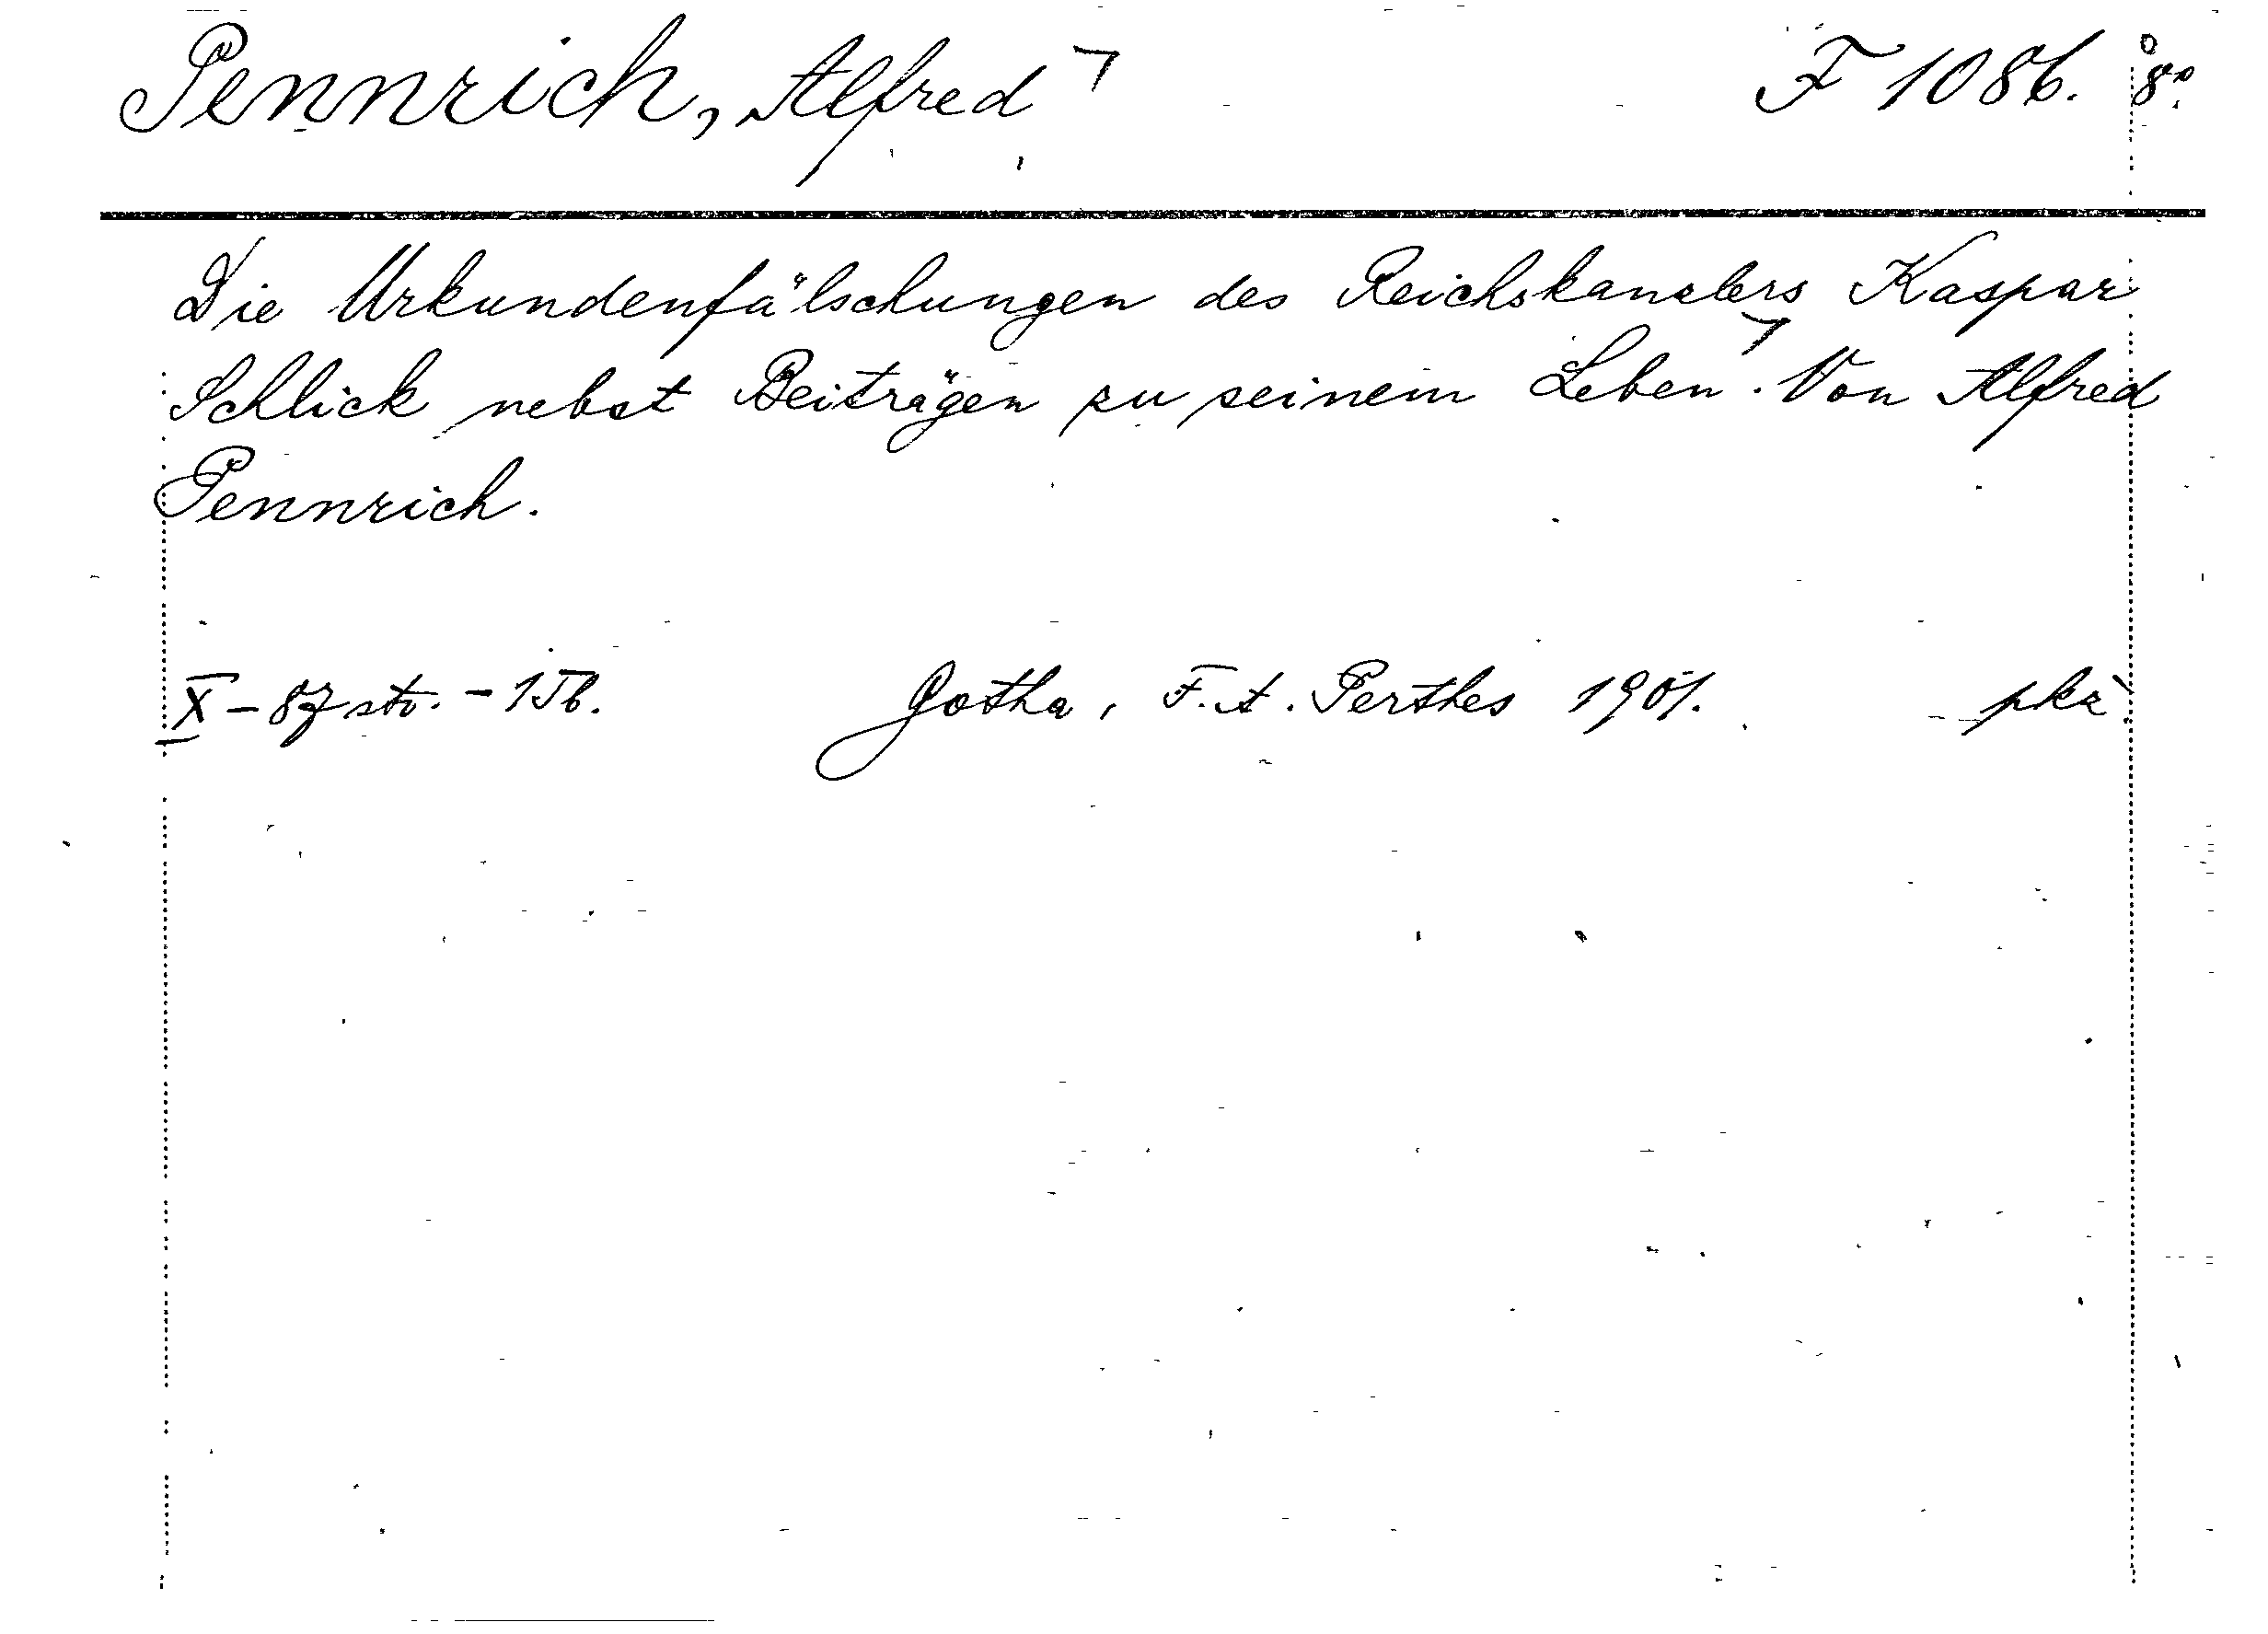 Pennrich, Alfred ⌝ F 1086. 8°.
Die Urkundenfälschungen des Reichskanzlers Kaspar
Schlick nebst Beiträgen zu seinem Leben ⌝. Von Alfred
Pennrich.
X – 87 str. – 1 Tb. Gotha, F. A. Perthes 1901. pkz